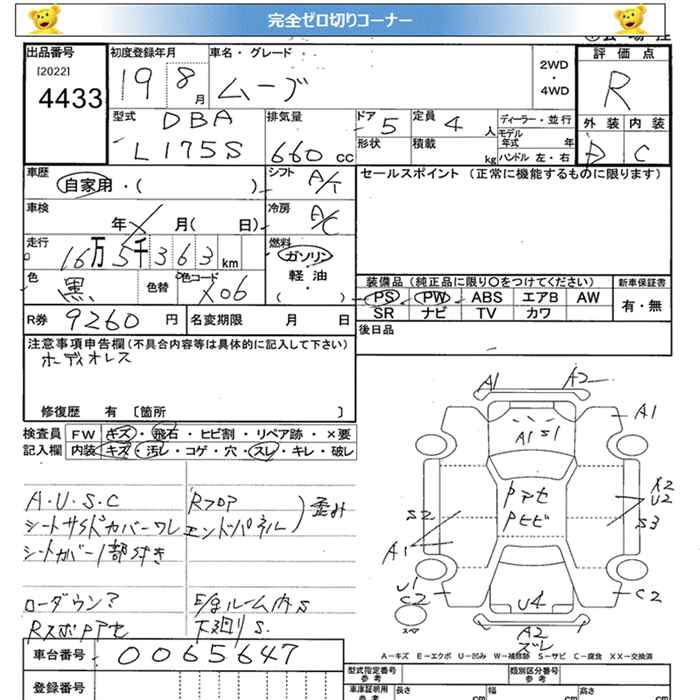 完全ゼロ切りコーナー
出品番号
[2022]
4433
初度登録年月
19 8 月
車名・グレード
ムーブ
2WD
・
4WD
評価点
R
型式
DBA
L175S
排気量
660 cc
ドア
5
形状
定員
4 人
積載
kg
ディーラー・並行
モデル
年式 年
ハンドル 左・右
外装 内装
D C
車歴
自家用・( )
シフト
A/T
車検
年 月( 日)
冷房
A/C
走行
16万5千363 km
燃料
ガソリン
軽・油
( ・ )
色
黒
色替
色コード
X06
R券 9260 円
名変期限 月 日
セールスポイント (正常に機能するものに限ります)
装備品(純正品に限り〇をつけてください)
PS PW ABS エアB AW
SR ナビ TV カワ
新車保証書
有・無
後日品
注意事項申告欄(不具合内容等は具体的に記入して下さい)
ボディオレス
修復歴 有 〔箇所 〕
検査員
記入欄
FW キズ・飛石・ヒビ割・リペア跡・×要
内装 キズ・汚レ・コゲ・穴・スレ・キレ・破レ
A・U・S・C
シートサイドカバーワレ
シートカバー1部付き
ローダウン?
RスポPアセ
Rフロア
エンドパネル
歪み
E/gルーム内S
下廻りS.
A1 A2
A1
A1 S1
Pアセ
Pヒビ
S2
A1
X2
U2
S3
U1
C2
C2
U4
A2
ズレ
スペア
A-キズ E-エクボ U-凹み W-補修跡 S-サビ C-腐食 XX-交換済
車台番号 0065647
登録番号
型式指定番号
参考
類別区分番号
参考
車庫証明用
参考
長さ cm
幅 cm
高さ cm